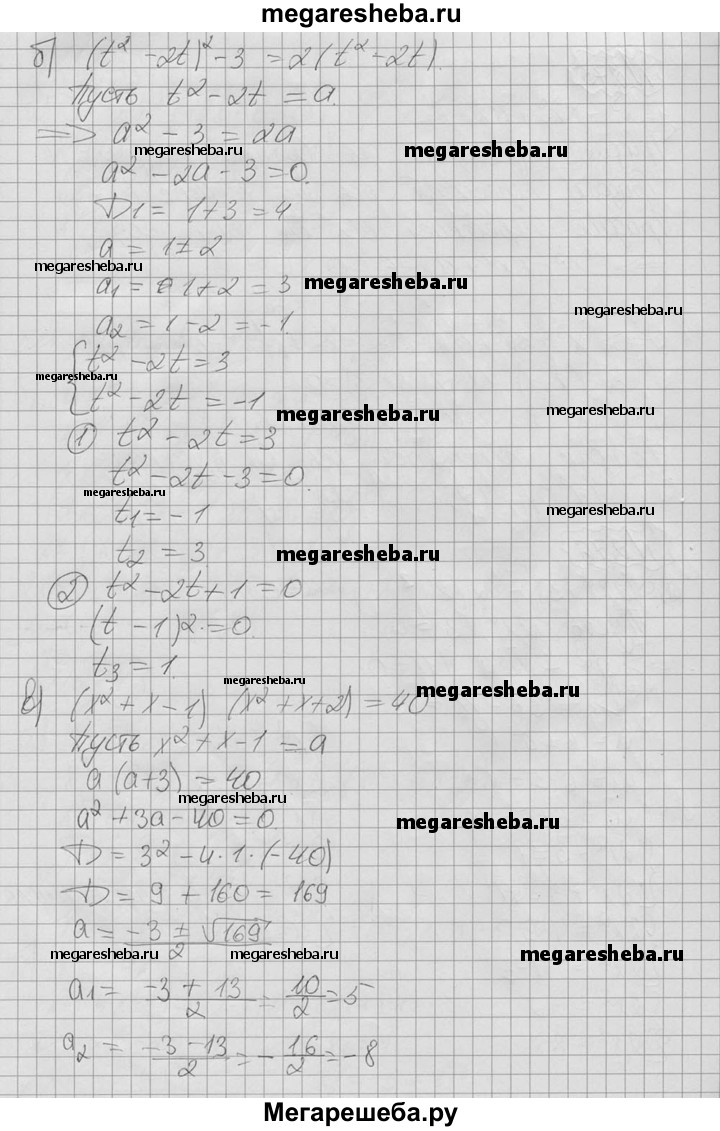 megaresheba.ru
б) (t² - 2t)² - 3 = 2(t² - 2t).
Пусть t² - 2t = a.
=> a² - 3 = 2a
megaresheba.ru megaresheba.ru
a² - 2a - 3 = 0.
D1 = 1+3 = 4
a = 1 ± 2
megaresheba.ru
a1 = 1+2 = 3 megaresheba.ru
megaresheba.ru
a2 = 1 - 2 = -1.
{ t² - 2t = 3
megaresheba.ru
{ t² - 2t = -1
megaresheba.ru megaresheba.ru
① t² - 2t = 3
t² - 2t - 3 = 0.
megaresheba.ru
t1 = -1 megaresheba.ru
t2 = 3. megaresheba.ru
② t² - 2t + 1 = 0
(t - 1)² = 0.
t3 = 1.
megaresheba.ru megaresheba.ru
в) (x² + x - 1) (x² + x + 2) = 40
Пусть x² + x - 1 = a
a (a+3) = 40
megaresheba.ru
a² + 3a - 40 = 0. megaresheba.ru
D = 3² - 4 · 1 · (-40)
D = 9 + 160 = 169
a = (-3 ± √169)/2
megaresheba.ru megaresheba.ru megaresheba.ru
a1 = (-3 + 13)/2 = 10/2 = 5
a2 = (-3 - 13)/2 = -16/2 = -8
Мегарешеба.ру